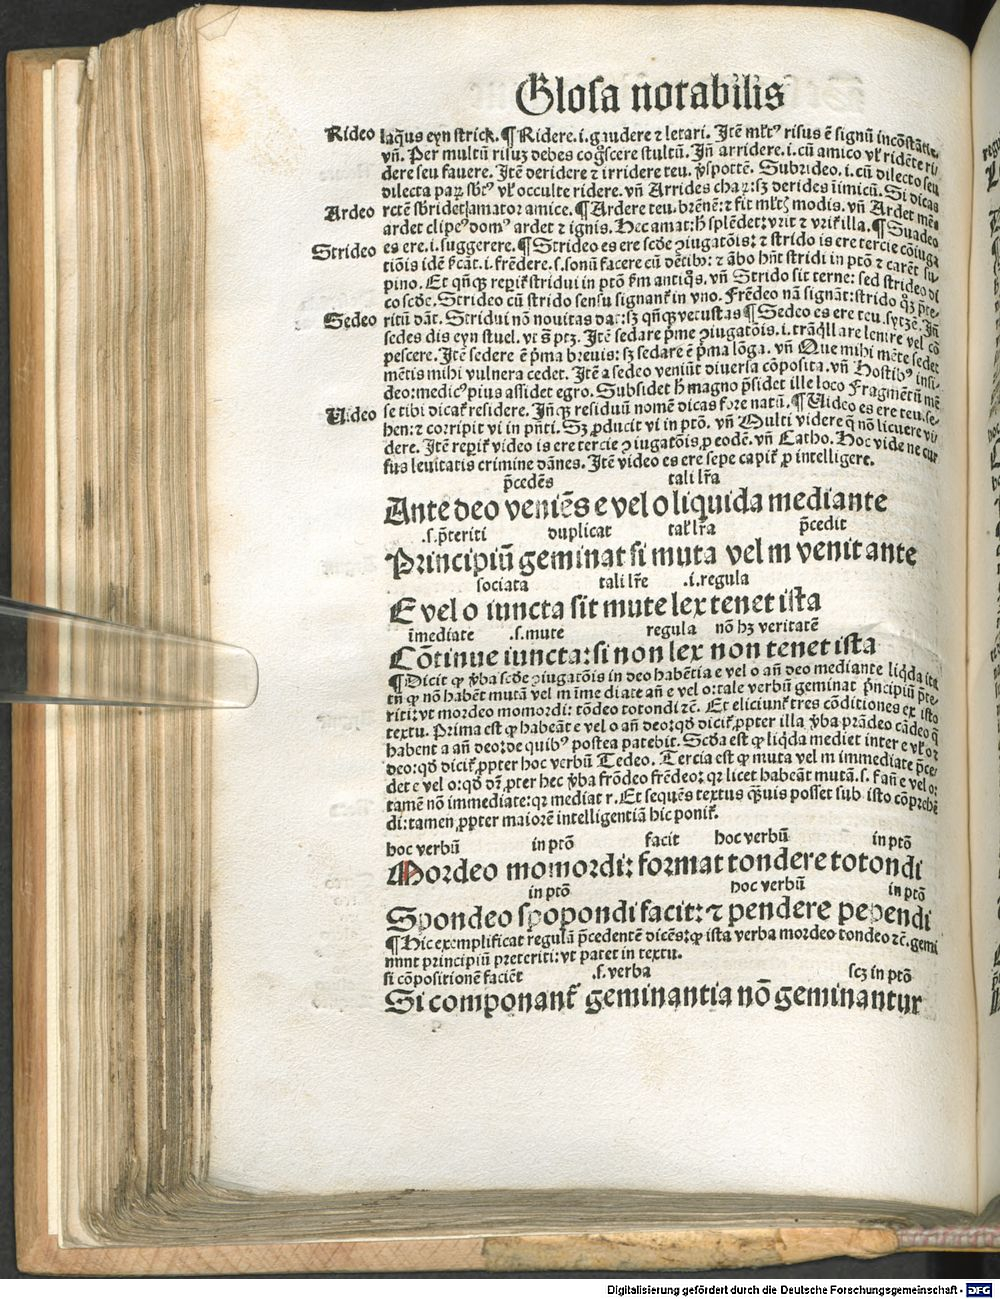 Glosa notabilis
Rideo laq̄us eyn strick. ¶ Ridere .i. gaudere ⁊ letari. Itē mlꝰ risus ē signū incōstātie.
vñ. Per multū risuꝫ debes cogscere stultū. Jñ arridere .i. cū amico vl ridēte ri
dere seu fauere. Itē deridere ⁊ irridere teu. vspottē. Subrideo .i. cū dilecto seu
dilecta paꝝ vl occulte ridere. vñ Arrides cha sꝫ derides īimicū. Si dicas
Ardeo amator amice. ¶ Ardere teu. brēnē: ⁊ fit modis. vñ Ardet mēs
ardet clipeꝰ domꝰ ardet ⁊ ignis. Hec amat: h splēdet: vrit ⁊ illa. ¶ Suadeo
Strideo es ere .i. suggerere. ¶ Strideo es ere scdē ꝯiugatōis: ⁊ strido is ere tercie cōiuga
tiōis idē .i. frēdere .s. sonū facere cū dētibꝰ: ⁊ ābo hñt stridi in ptō ⁊ carēt su
pino. Et qñqꝫ stridui in ptō antiqs. vñ Strido sit terne: sed strideo di
co scdē. Strideo cū strido sensu in vno. Frēdeo nā signāt: strido qꝫ p̄te-
Sedeo ritū dāt. Stridui nō nouitas sꝫ qñqꝫ vetustas ¶ Sedeo es ere teu. sytzē. Jñ
sedes dis eyn stuel. vt Itē sedare p̄me ꝯiugatōis .i. trāqllare lenire vel cō
pescere. Itē sedere ē p̄ma breuis: sꝫ sedare ē p̄ma lōga. vñ Que mihi mēte sedet
mētis mihi vulnera cedet. Itē a sedeo veniūt diuersa cōposita. vñ Hostibꝰ insi-
deo: medicꝰ pius assidet egro. Subsidet h magno p̄sidet ille loco Fragmētū mē
Uideo se tibi dicat residere. Jñ qꝫ residuū nomē dicas fore natū. ¶ Uideo es ere teu. se-
hen: ⁊ corripit vi in pñti. Sꝫ ꝓducit vi in ptō. vñ Multi videre q̄ nō licuere vi
dere. Itē video is ere tercie ꝯiugatōis ꝓ eodē. vñ Catho. Hoc vide ne cur
sus leuitatis crimine dānes. Itē video es ere sepe capit ꝓ intelligere.
p̄cedēs tali lr̄a
Ante deo veniēs e vel o liquida mediante
.s. p̄teriti duplicat tal lr̄a p̄cedit
Principiū geminat si muta vel m venit ante
sociata tali lr̄e .i. regula
E vel o iuncta sit mute lex tenet ista
īmediate .s. mute regula nō hꝫ veritatē
Cōtinue iuncta: si non lex non tenet ista
¶ Dicit ꝙ v̄ba scdē ꝯiugatōis in deo habētia e vel o añ deo mediante liqda ita
tñ ꝙ nō habēt mutā vel m īmediate añ e vel o: tale verbū geminat p̄ncipiū p̄te-
riti: vt mordeo momordi: tōdeo totondi ⁊c̄. Et eliciunt tres cōditiones ex isto
textu. Prima est ꝙ habeāt e vel o añ deo: qd dicit ꝓpter illa v̄ba prādeo cādeo q̄
habent a añ deo: de quibꝰ postea patebit. Scda est ꝙ liqda mediet inter e vl o ⁊
deo: qd dicit ꝓpter hoc verbū Tedeo. Tercia est ꝙ muta vel m immediate p̄ce-
det e vel o: qd dr̄ ꝓpter hec v̄ba frōdeo frēdeo: qꝛ licet habeāt mutā .s. f añ e vel o:
tamē nō immediate: qꝛ mediat r. Et sequēs textus quis posset sub isto cōprehē
di: tamen ꝓpter maiorē intelligentiā hic ponit.
hoc verbū in ptō facit hoc verbū in ptō
Mordeo momordi: format tondere totondi
in ptō hoc verbū in ptō
Spondeo spopondi facit: ⁊ pendere pependi
¶ Hic exemplificat regulā p̄cedentē dicēs: ꝙ ista verba mordeo tondeo ⁊c̄. gemi
nant principiū preteriti: vt patet in textu.
si cōpositionē faciēt .s. verba scꝫ in ptō
Si componant geminantia nō geminantur
Digitalisierung gefördert durch die Deutsche Forschungsgemeinschaft - DFG